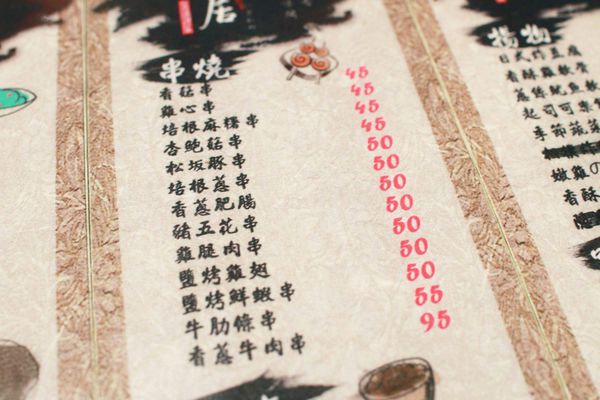 居
串燒
香菇串 45
雞心串 45
培根麻糬串 45
杏鮑菇串 45
松坂豚串 50
培根蔥串 50
香蔥肥腸 50
豬五花串 50
雞腿肉串 50
鹽烤雞翅 50
鹽烤鮮蝦串 50
牛肋條串 55
香蔥牛肉串 95
揚物
日式炸豆腐
香酥雞軟骨
魷魚軟
起司可樂
季節蔬菜
嫩雞の
香酥